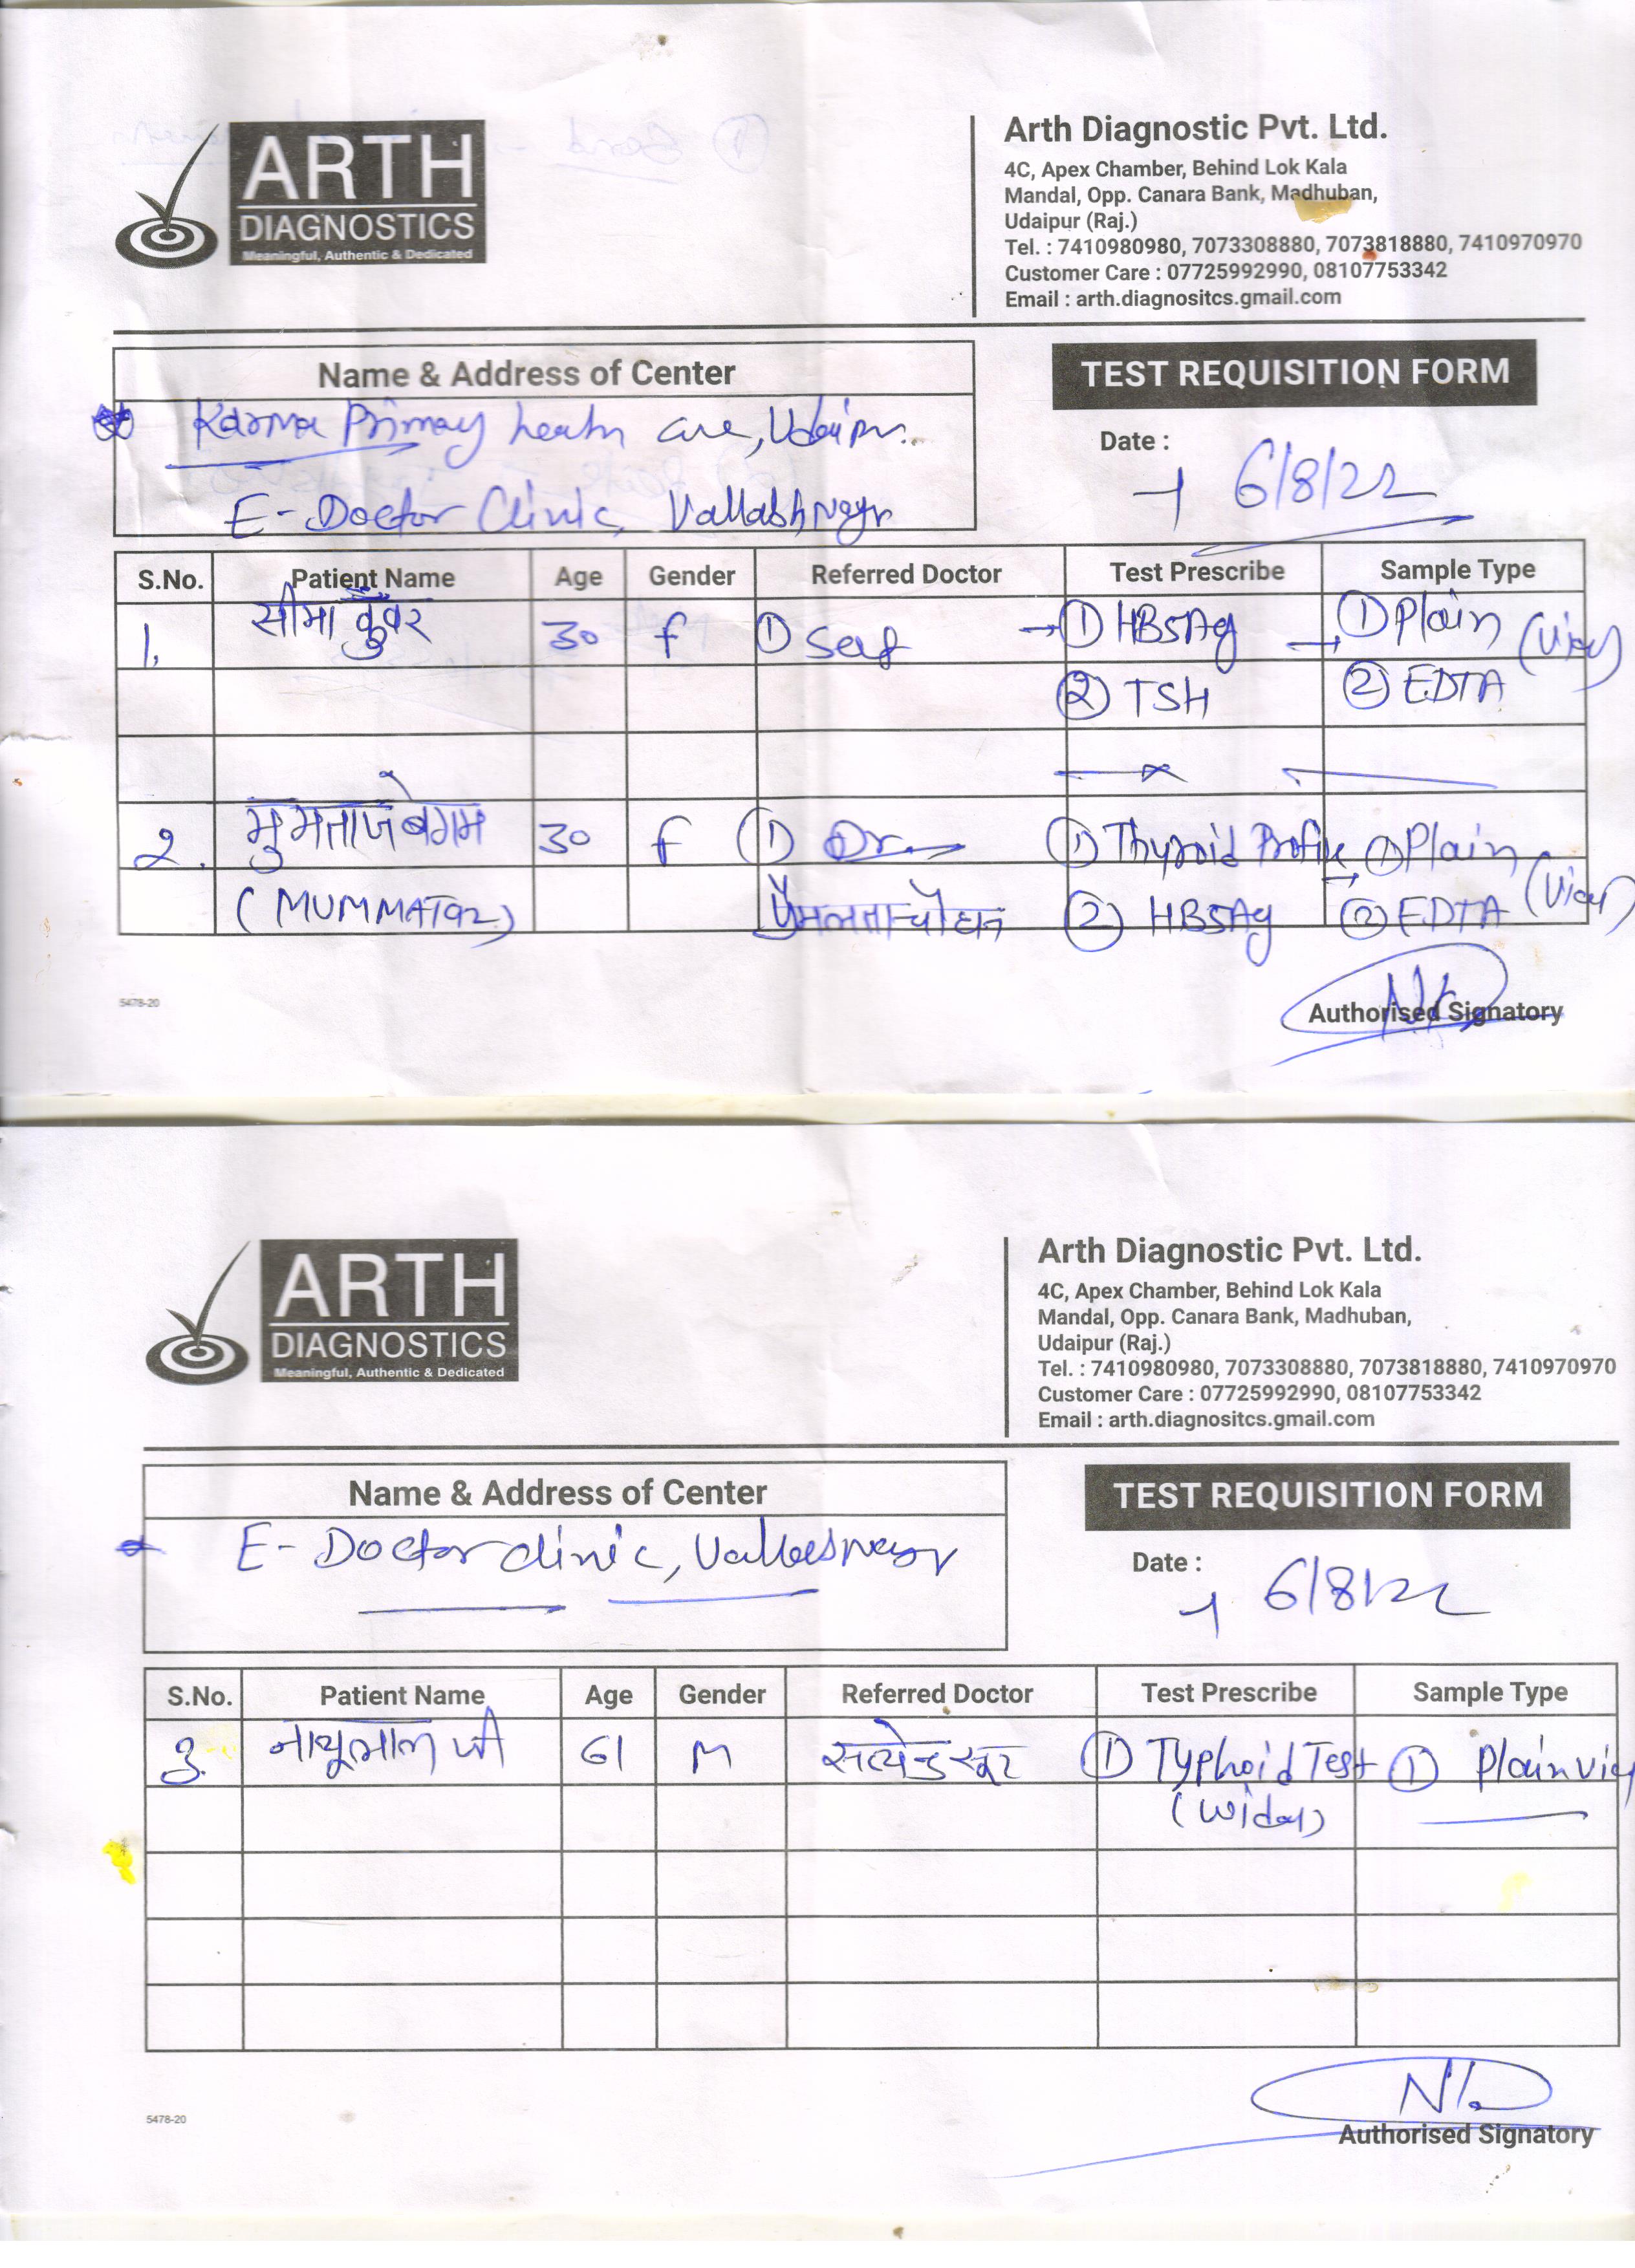 ARTH
DIAGNOSTICS
Meaningful, Authentic & Dedicated
Arth Diagnostic Pvt. Ltd.
4C, Apex Chamber, Behind Lok Kala
Mandal, Opp. Canara Bank, Madhuban,
Udaipur (Raj.)
Tel. : 7410980980, 7073308880, 7073818880, 7410970970
Customer Care : 07725992990, 08107753342
Email : arth.diagnositcs.gmail.com
Name & Address of Center
Karma Primary health care, Udaipur.
E-Doctor Clinic, Vallabhnagr
TEST REQUISITION FORM
Date :
6/8/22
S.No. Patient Name Age Gender Referred Doctor Test Prescribe Sample Type
1. सीमा कुँवर 30 f ① Self → ① HBsAg → ① Plain (Vial)
② TSH ② EDTA
2. मुमताज बेगम 30 f ① Dr. ① Thyroid Profile → ① Plain (Vial)
(MUMMATAZ) ② HBsAg ② EDTA
5478-20
Authorised Signatory
ARTH
DIAGNOSTICS
Meaningful, Authentic & Dedicated
Arth Diagnostic Pvt. Ltd.
4C, Apex Chamber, Behind Lok Kala
Mandal, Opp. Canara Bank, Madhuban,
Udaipur (Raj.)
Tel. : 7410980980, 7073308880, 7073818880, 7410970970
Customer Care : 07725992990, 08107753342
Email : arth.diagnositcs.gmail.com
Name & Address of Center
E-Doctor clinic, Vallabhnagr
TEST REQUISITION FORM
Date :
6/8/22
S.No. Patient Name Age Gender Referred Doctor Test Prescribe Sample Type
3. नाथूलाल जी 61 M ① Typhoid Test ① Plain vial
(widal)
5478-20
Authorised Signatory